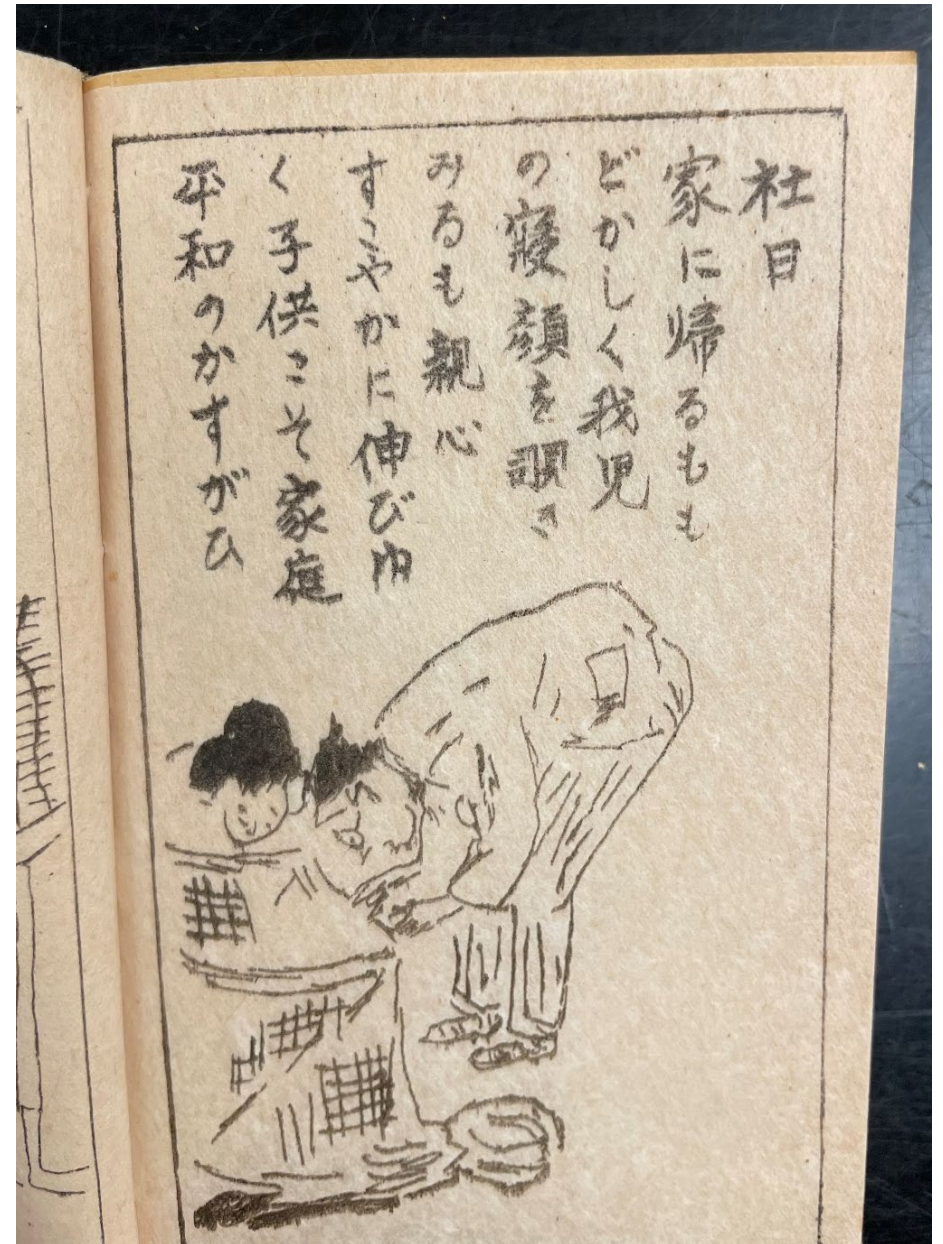 社日
家に帰るもも
どかしく我児
の寝顔を覗き
みるも親心
すこやかに伸びゆ
く子供こそ家庭
平和のかすがひ